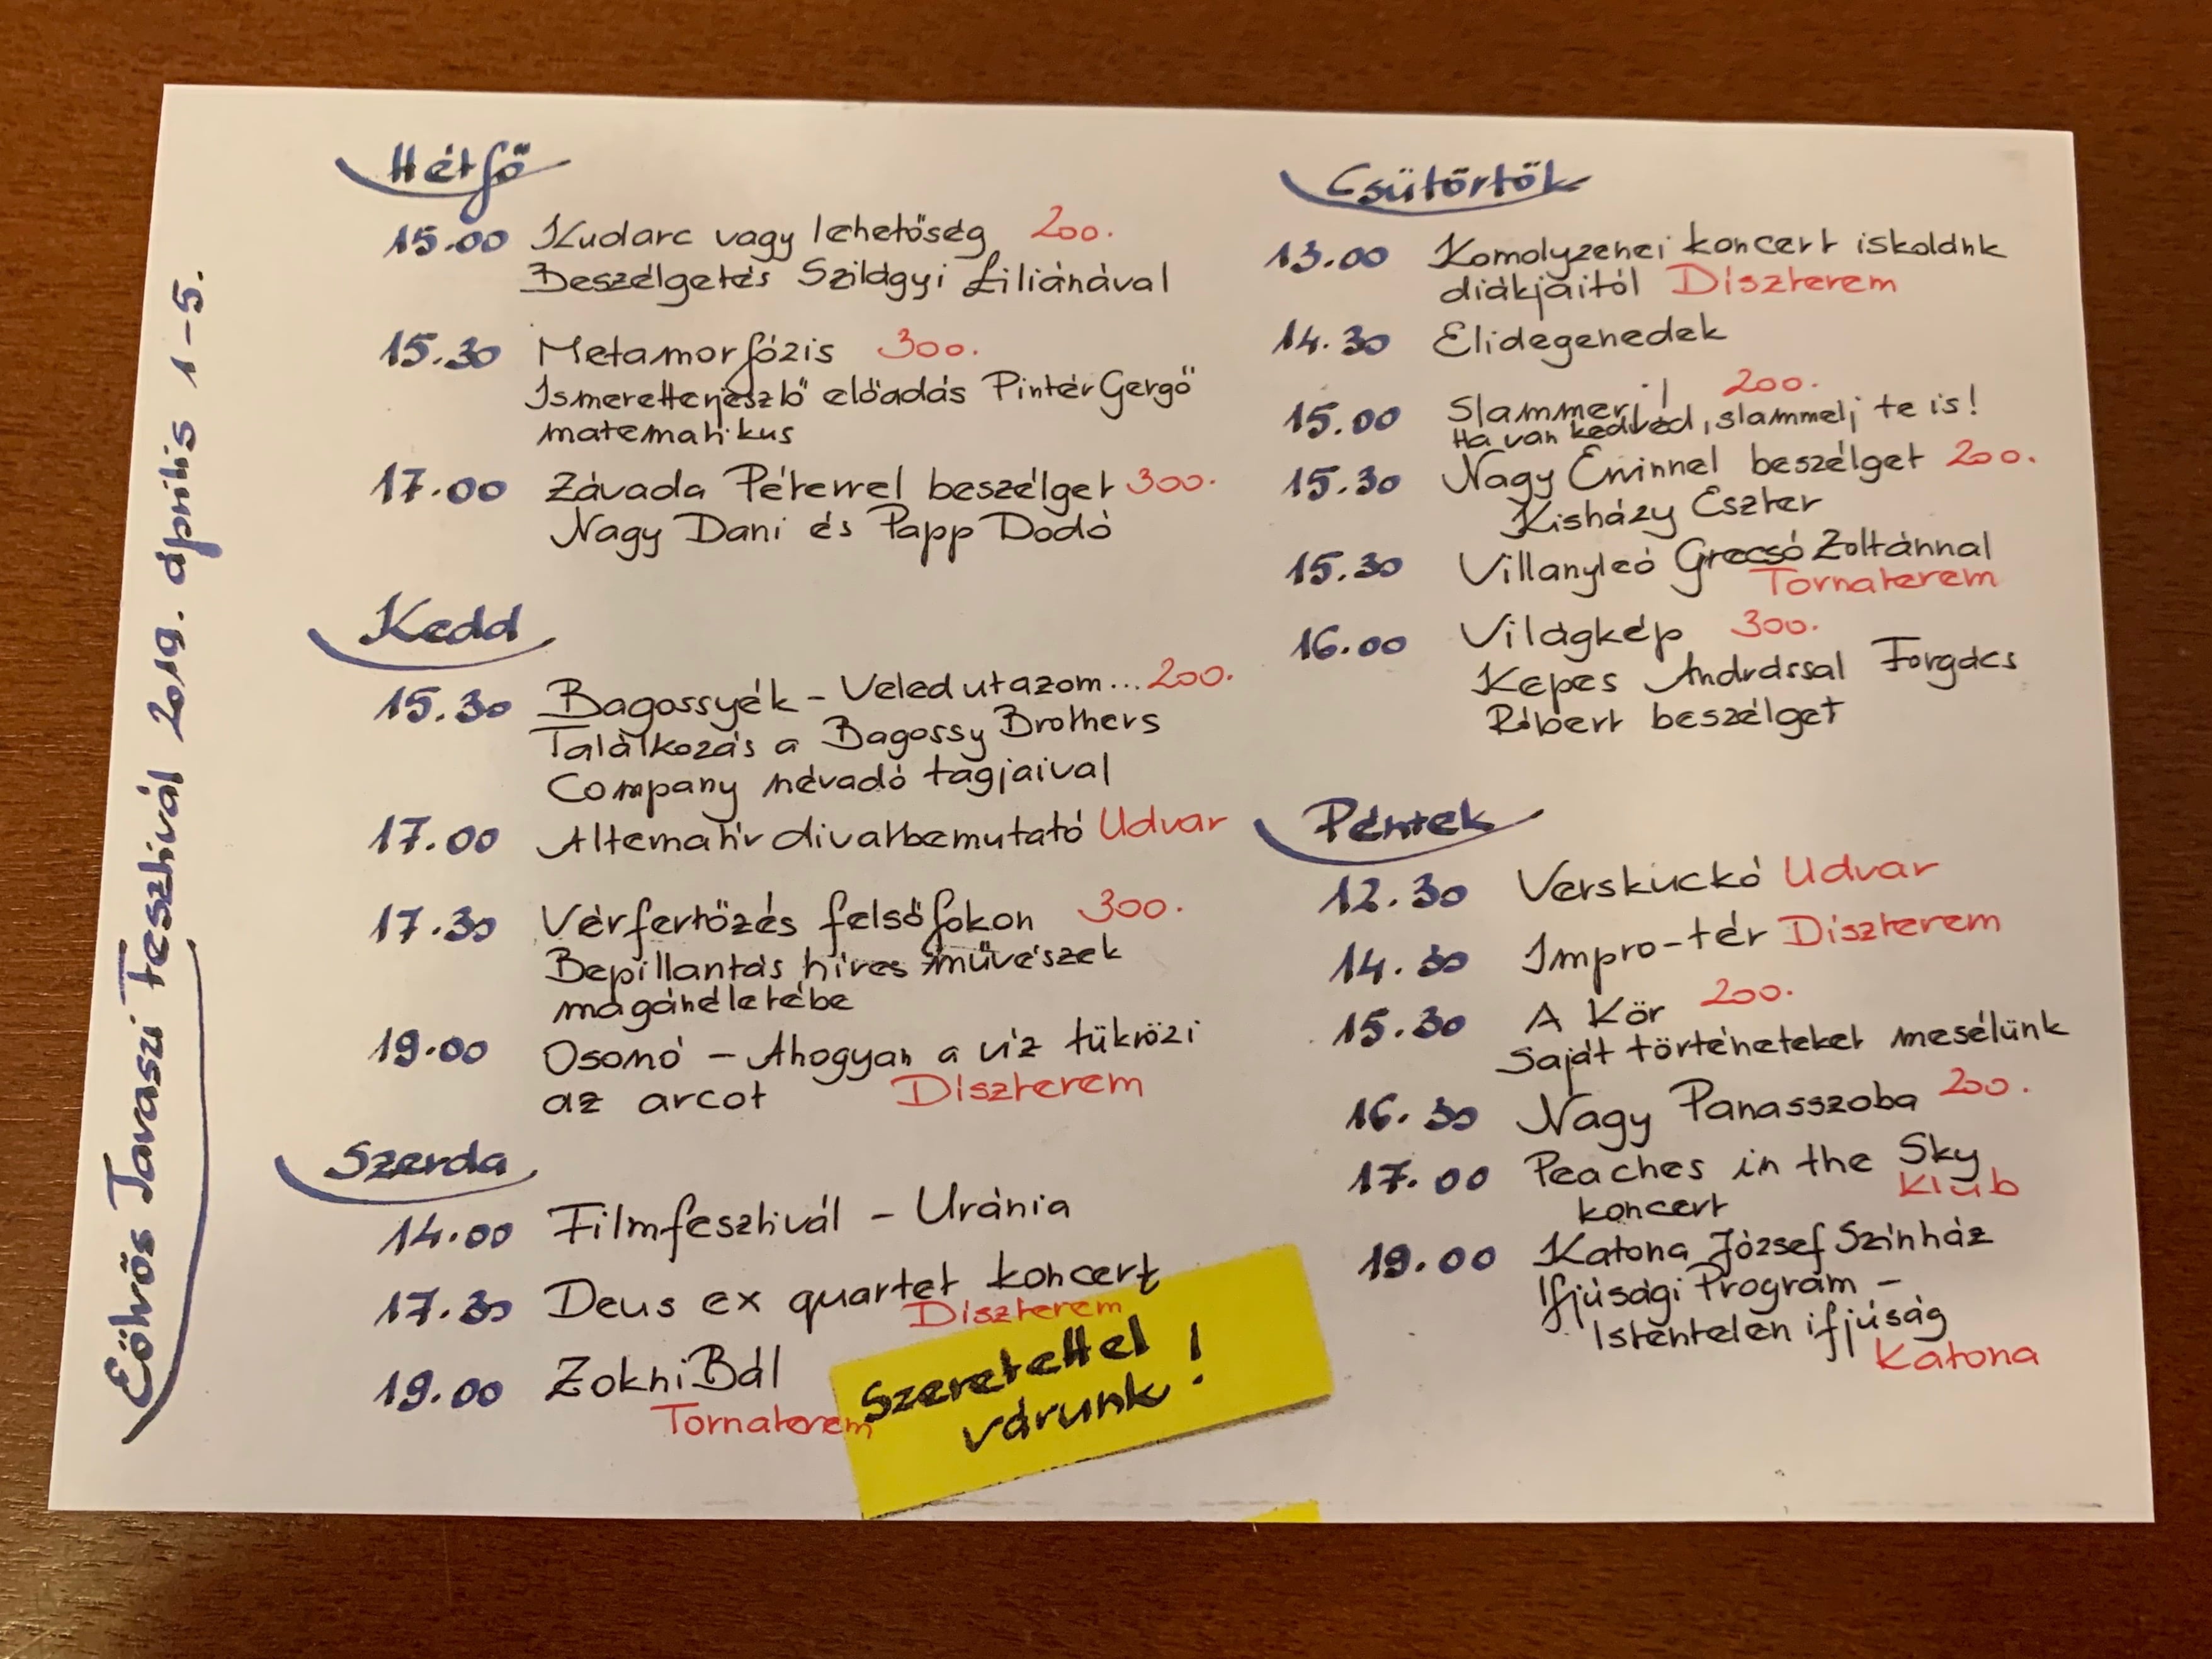 Eötvös Tavaszi Fesztivál 2019. április 1-5.
Hétfő
15.00 Kudarc vagy lehetőség 200.
Beszélgetés Szilágyi Liliánával
15.30 Metamorfózis 300.
Ismeretterjesztő előadás Pintér Gergő
matematikus
17.00 Závada Péterrel beszélget 300.
Nagy Dani és Papp Dodó
Kedd
15.30 Bagossyék - Veled utazom... 200.
Találkozás a Bagossy Brothers
Company névadó tagjaival
17.00 Alternatív divatbemutató Udvar
17.30 Vérfertőzés felsőfokon 300.
Bepillantás híres művészek
magánéletébe
19.00 Osonó - Ahogyan a víz tükrözi
az arcot Díszterem
Szerda
14.00 Filmfesztivál - Uránia
17.30 Deus ex quartet koncert
Díszterem
19.00 ZokniBál
Tornaterem
Szeretettel
várunk!
Csütörtök
13.00 Komolyzenei koncert iskolánk
diákjaitól Díszterem
14.30 Elidegenedek
15.00 Slammer! 200.
Ha van kedved, slammelj te is!
15.30 Nagy Ervinnel beszélget 200.
Kisházy Eszter
15.30 Villanyleó Grecsó Zoltánnal
Tornaterem
16.00 Világkép 300.
Kepes Andrással Forgács
Róbert beszélget
Péntek
12.30 Verskuckó Udvar
14.30 Impro-tér Díszterem
15.30 A Kör 200.
Saját történeteket mesélünk
16.30 Nagy Panasszoba 200.
17.00 Peaches in the Sky
koncert Klub
19.00 Katona József Színház
Ifjúsági Program -
Istentelen ifjúság
Katona